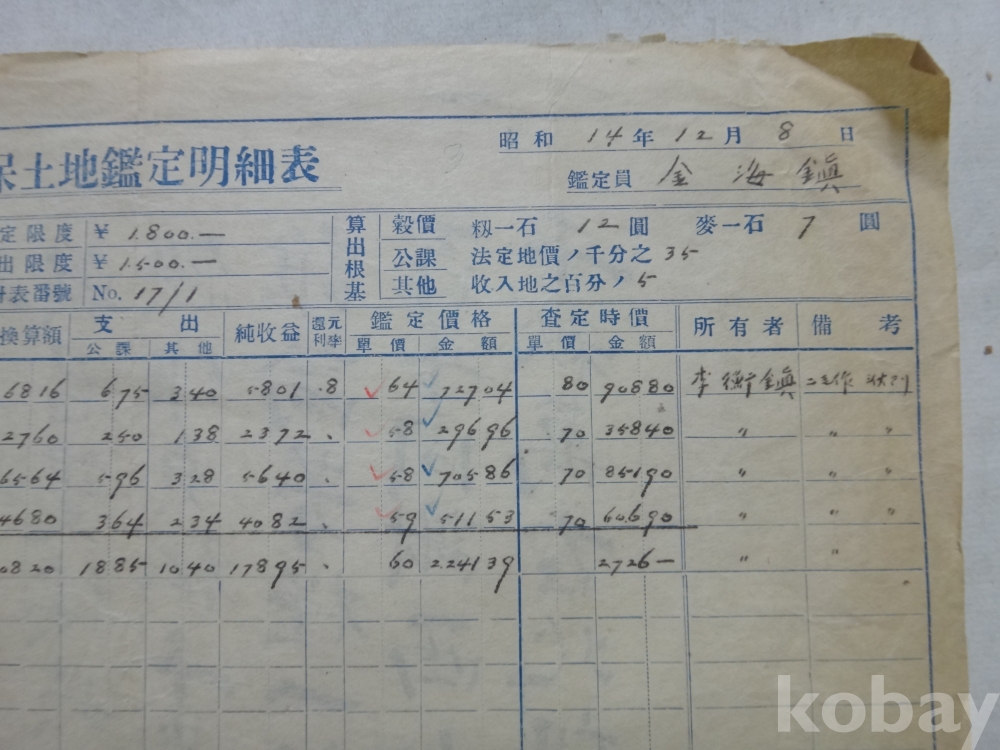 昭和 14年 12月 8日
土地鑑定明細表
鑑定員 金海鎭
定限度 ¥ 1.800.—
出限度 ¥ 1.500.—
表番號 No. 17/1
算出根基
穀價 籾一石 12圓 麥一石 7圓
公課 法定地價ノ千分之 35
其他 收入地之百分ノ 5
換算額 支出 純收益 還元利率 鑑定價格 査定時價 所有者 備考
公課 其他 單價 金額 單價 金額
6816 675 340 5801 .8 64 72704 80 90880 李 鎭 二毛作
2760 250 138 2372 . 58 29696 70 35840 〃 〃 〃
6564 596 328 5640 . 58 70586 70 85190 〃 〃 〃
4680 364 234 4082 . 59 51153 70 60690 〃 〃 〃
0820 1885 1040 17895 . 60 224139 2726— 〃 〃
kobay